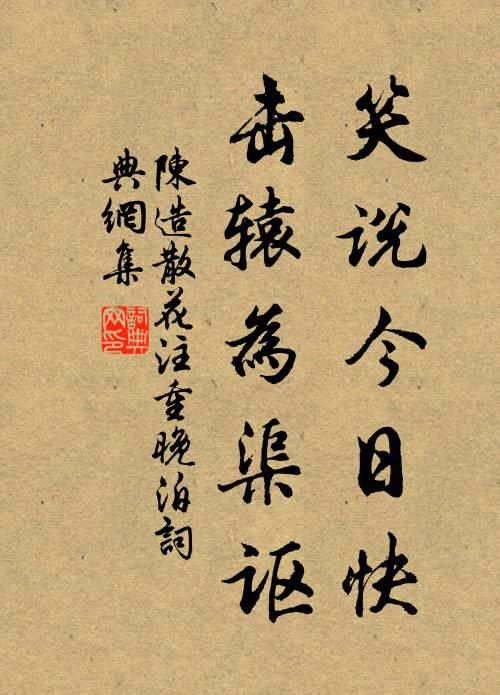 笑说今日快
击辕為渠讴
陳造散花注重晚泊詞
典網集
詞典網印